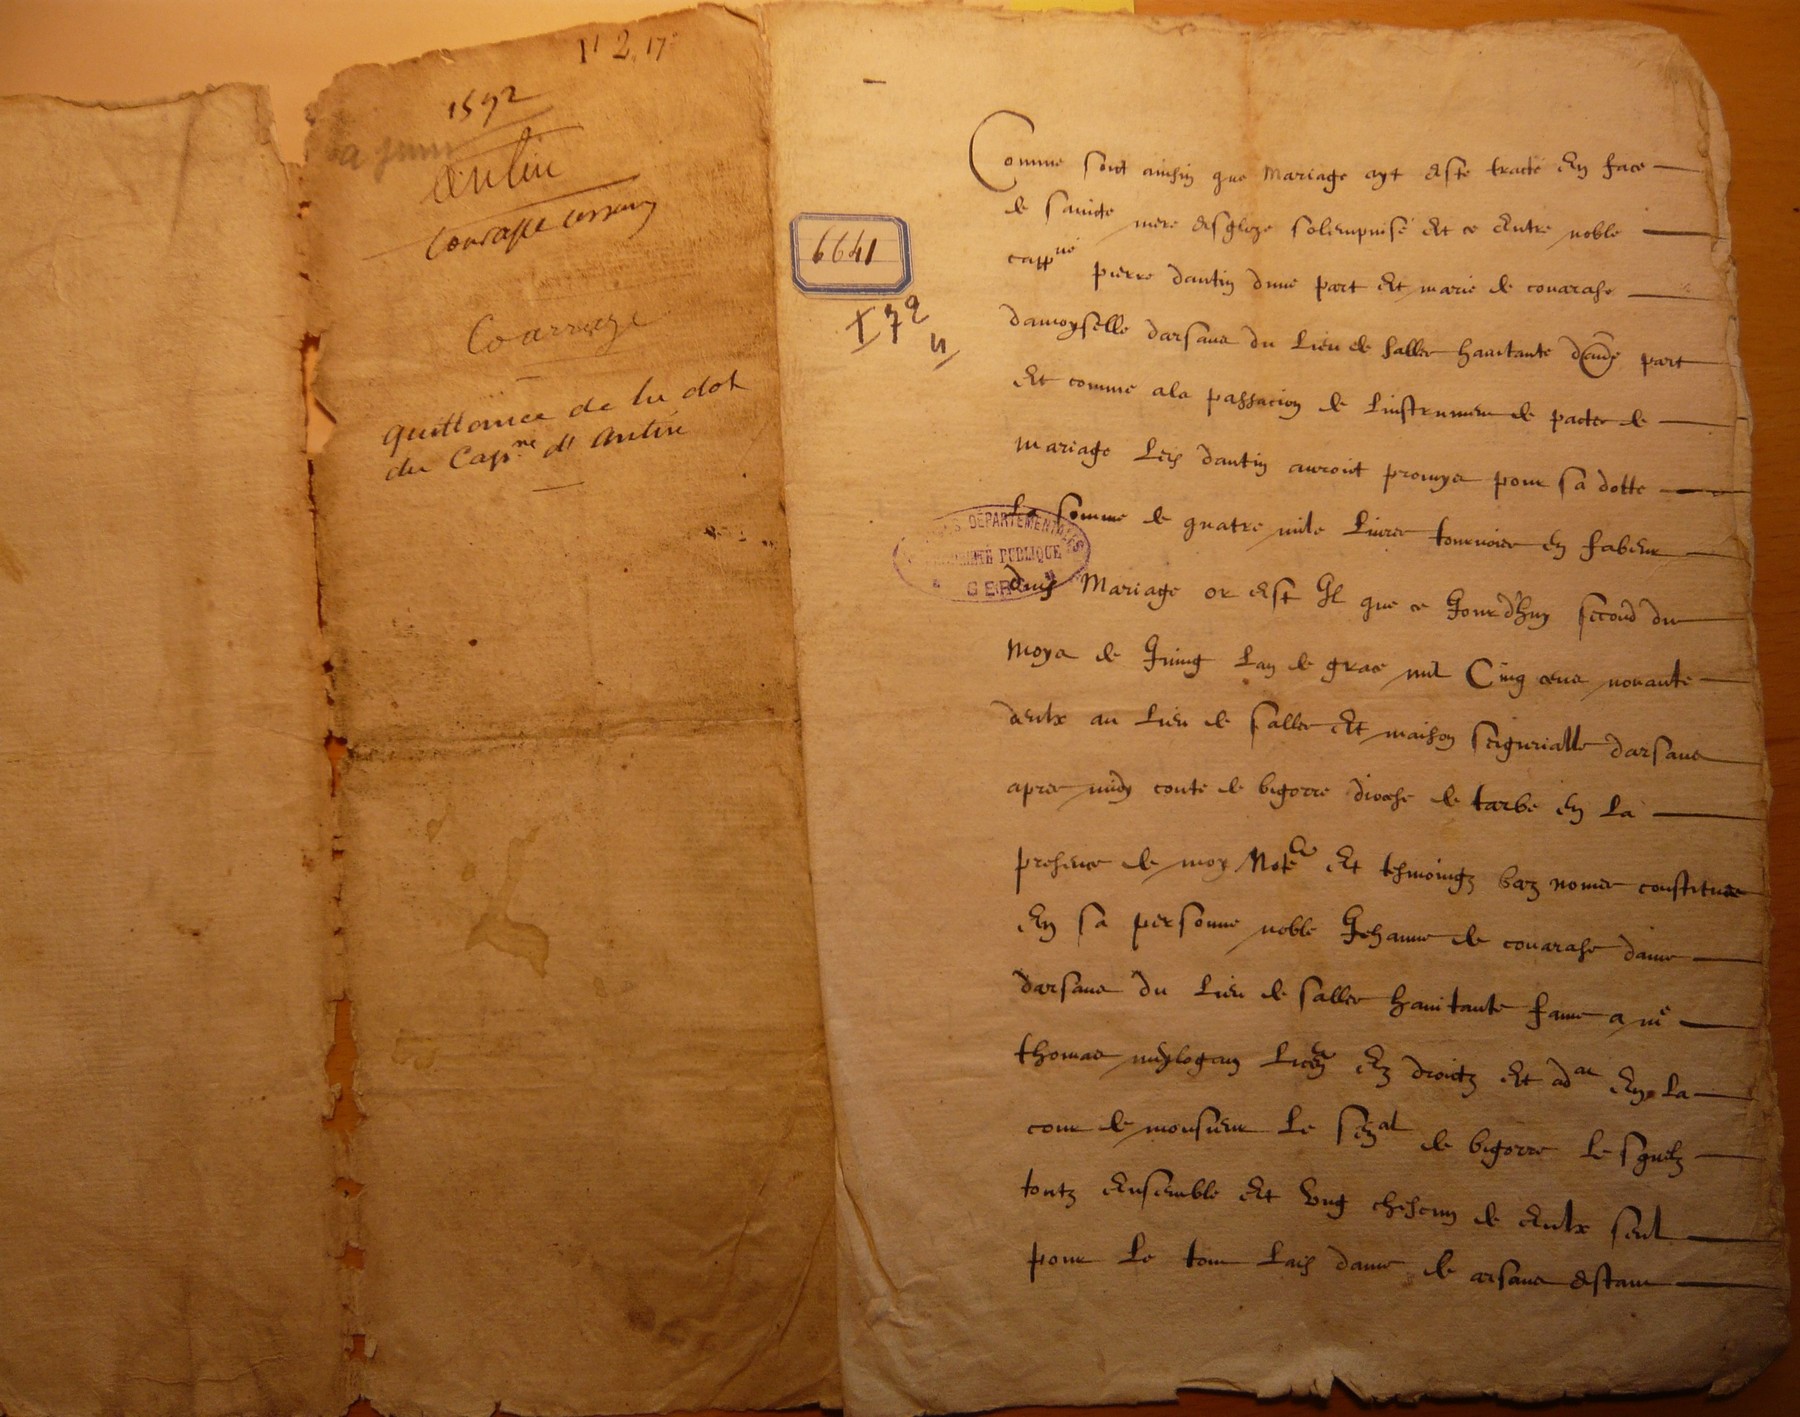 1592
antin
Couarraze
quittance de la dot
du Cap.ne d'antin
6641
I 72
Comme soit ainsin que mariage ayt este tracte en face
de saincte mere esglize solempnisé et ce entre noble
cappne pierre dantin dune part et marie de couarase
damoyselle darsans du lieu de salles havitante daude part
et comme a la passacion de linstrument de pactes de
mariage led dantin auroict promys pour sa dotte
la somme de quatre mile livres tournoises en fabeur
dud mariage or est Il que ce Jourdhuy second du
moys de Juing lan de grace mil Cinq cens nonante
deulx au lieu de salles et maison seigurialle darsans
apres midy conte de bigorre diocese de tarbe en la
presence de moy Note et tesmoingz bas nomes constituee
en sa personne noble Jehanne de couarase dame
darsans du lieu de salles havitante fame a me
thomas licen en droictz et adat en la
cour de monsieur le senal de bigorre lesquelz
toutz ensemble et ung chescun de eulx seul
pour le tout lad dame de arsans estant
ARCHIVES DÉPARTEMENTALES
PROPRIÉTÉ PUBLIQUE
GERS